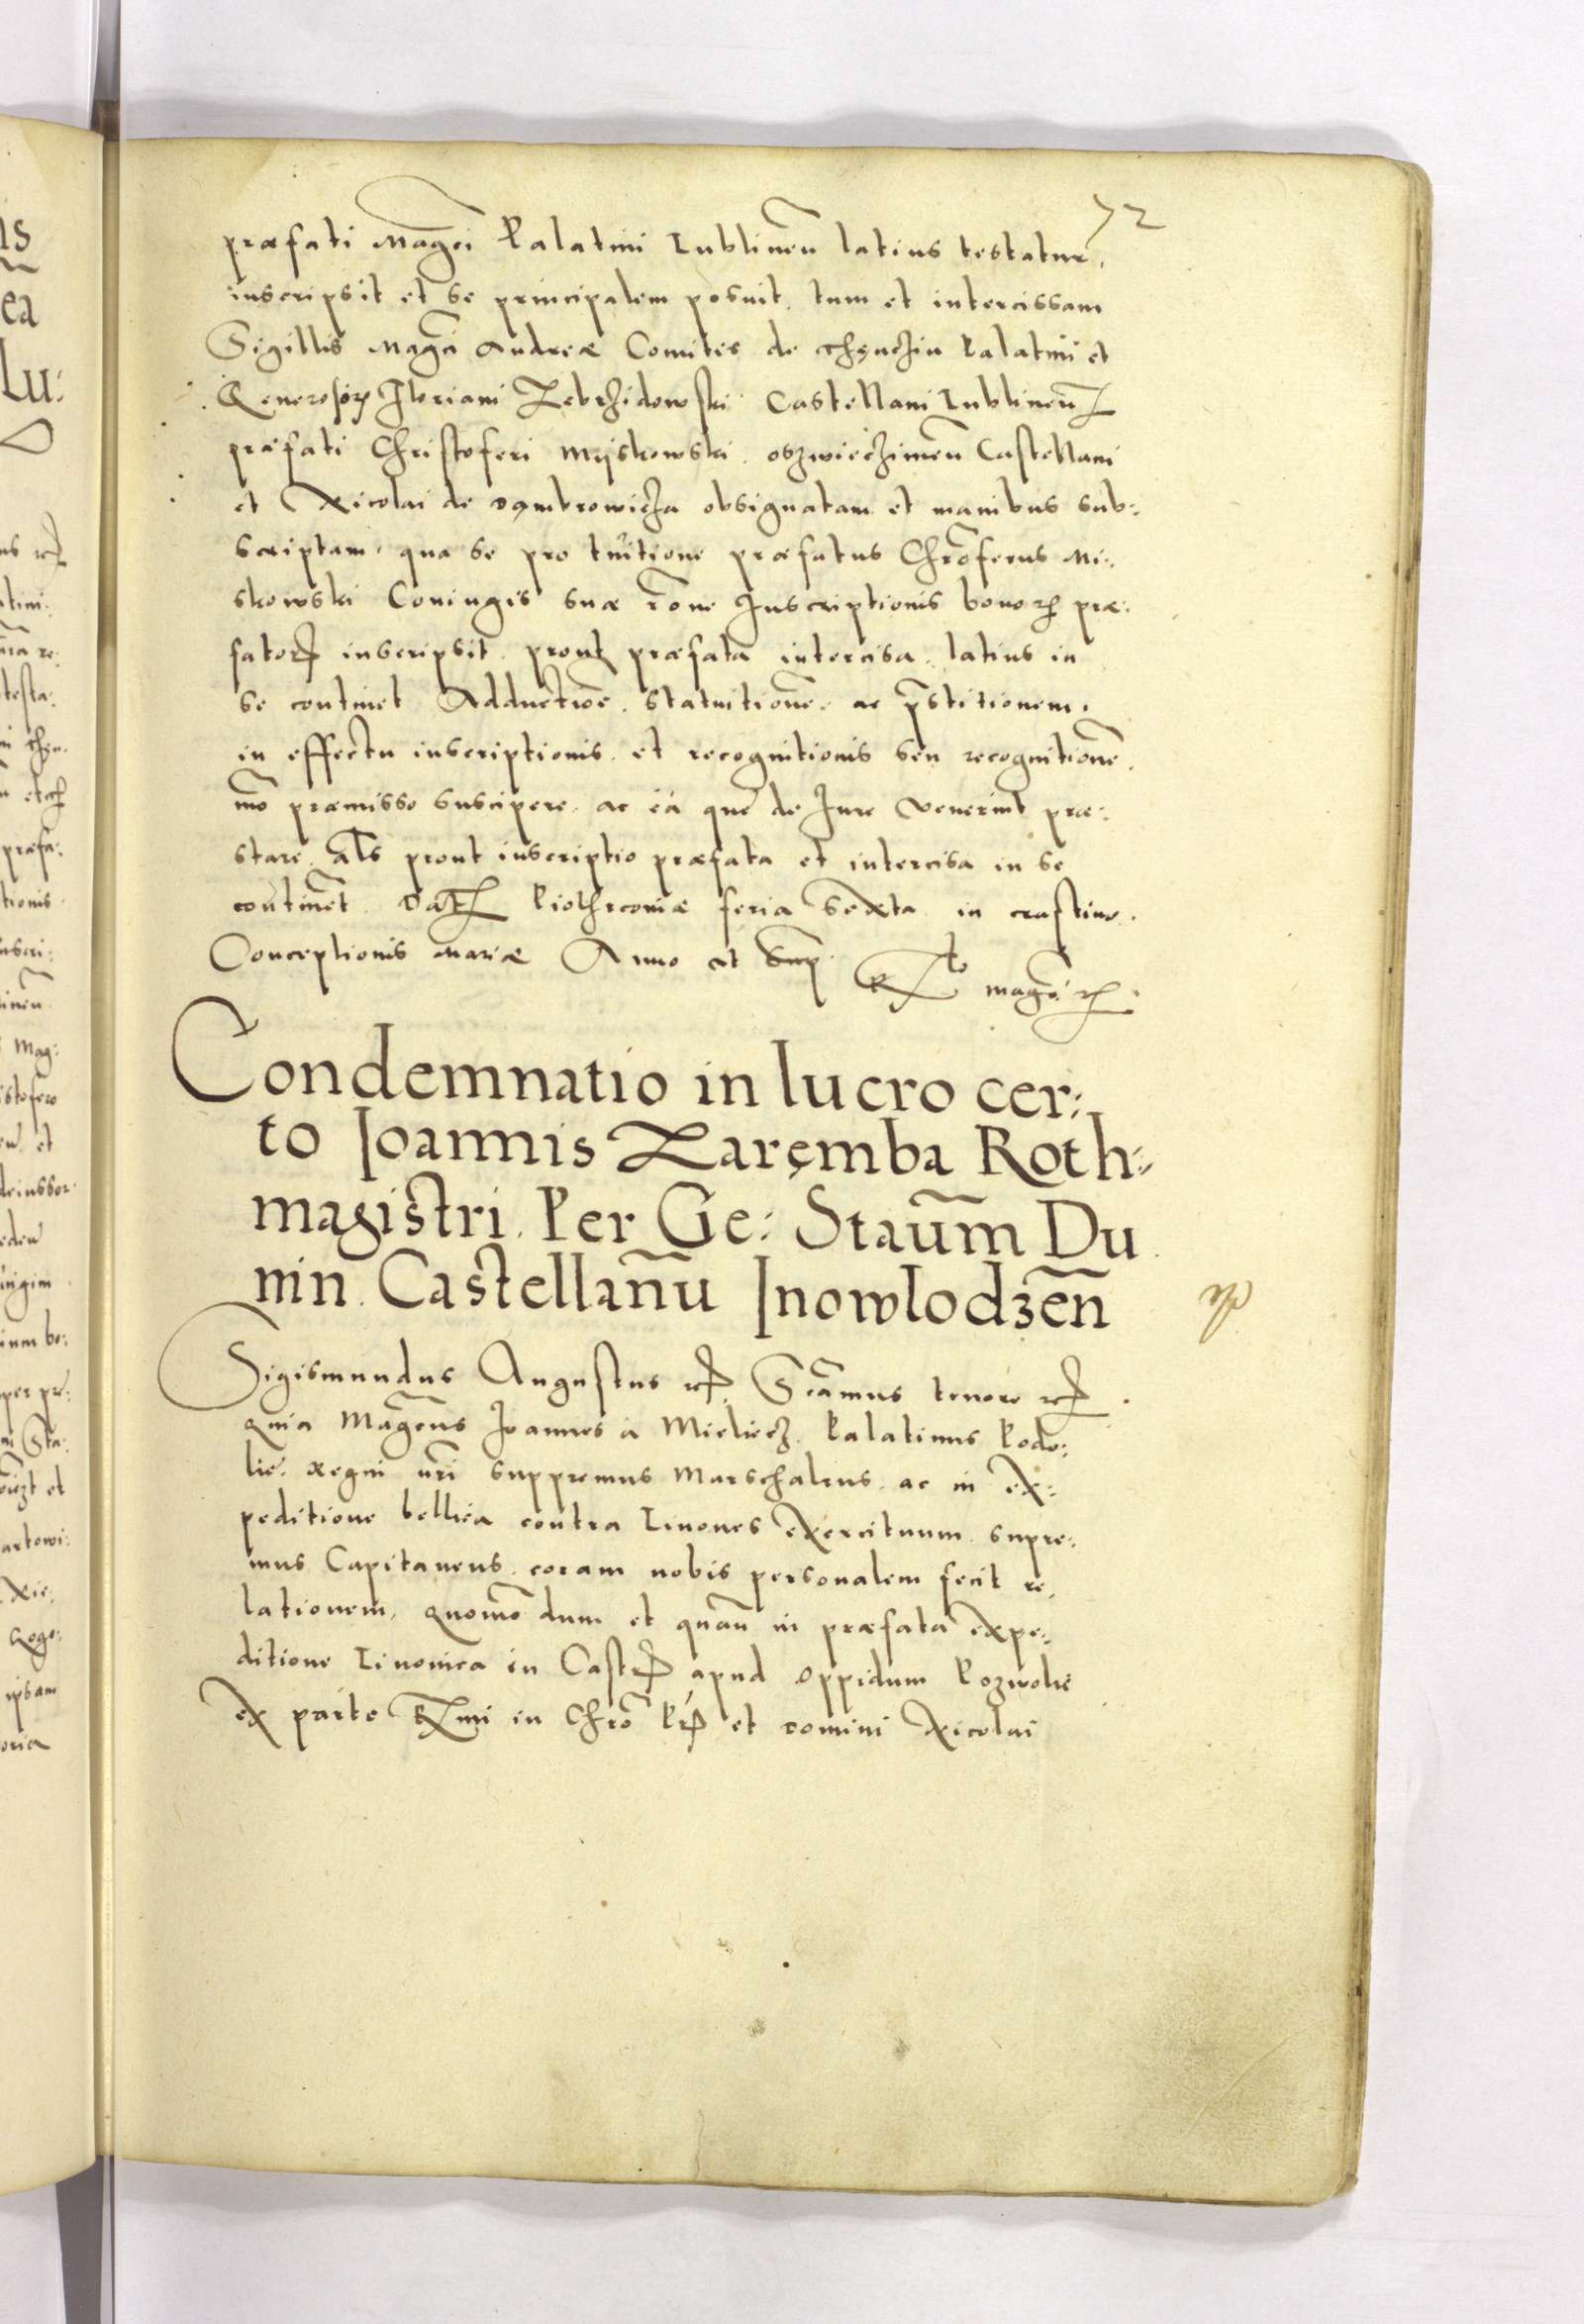 72
præfati Mag̃ci Palatini Lublineñ latius testatur,
inscripsit et se principalem posuit, tum et intercissam
Sigillis Mag̃ci Andreæ Comites de Thęnczin Palatini et
Generosoꝝ Floriani Zebrzidowski Castellani Lublineñ
præfati Christoferi Myskowski oszwieczimeñ Castellani
et Nicolai de Dąmbrowicza obsignatam et manibus sub:
scriptam, qua se pro tuitione præfatus Chrõferus Mi:
skowski Coniugis suæ rõne Inscriptionis bonoꝝ præ:
fatoꝝ inscripsit, prout præfata intercisa latius in
se continet Adductioẽ, statuitionẽ, ac p̃stitionem,
in effectu inscriptionis et recognitionis seu recognitionẽ
mõ præmisso suscipere, ac ea que de Iure venerint præ:
stare. Als prout inscriptio præfata et intercisa in se
contineñt. Dat Piothrconiæ feria sexta in crastino
Conceptionis Mariæ Anno ut Sup
Rlo mag̃ci
Condemnatio in lucro cer:
to Ioannis Zaręmba Roth:
magistri. Per Ge: Stau̅m Du
nin. Castellañu Inowlodzẽn
Sigismundus Augustus etc. S cãmus tenore etc.
quia Mag̃cus Ioannes a Mieliecz. Palatinus Podo:
lie. Regni nr̃i suppremus Marschalcus, ac in ex:
peditione bellica contra Liuones exercituum supre:
mus Capitaneus, coram nobis personalem fecit re,
lationem, quomõ dum et quañ in præfata expe:
ditione Liuonica in Castr apud oppidum Pozwolie
ex parte Rmi in Chrõ Pr̃ et Domini Nicolai